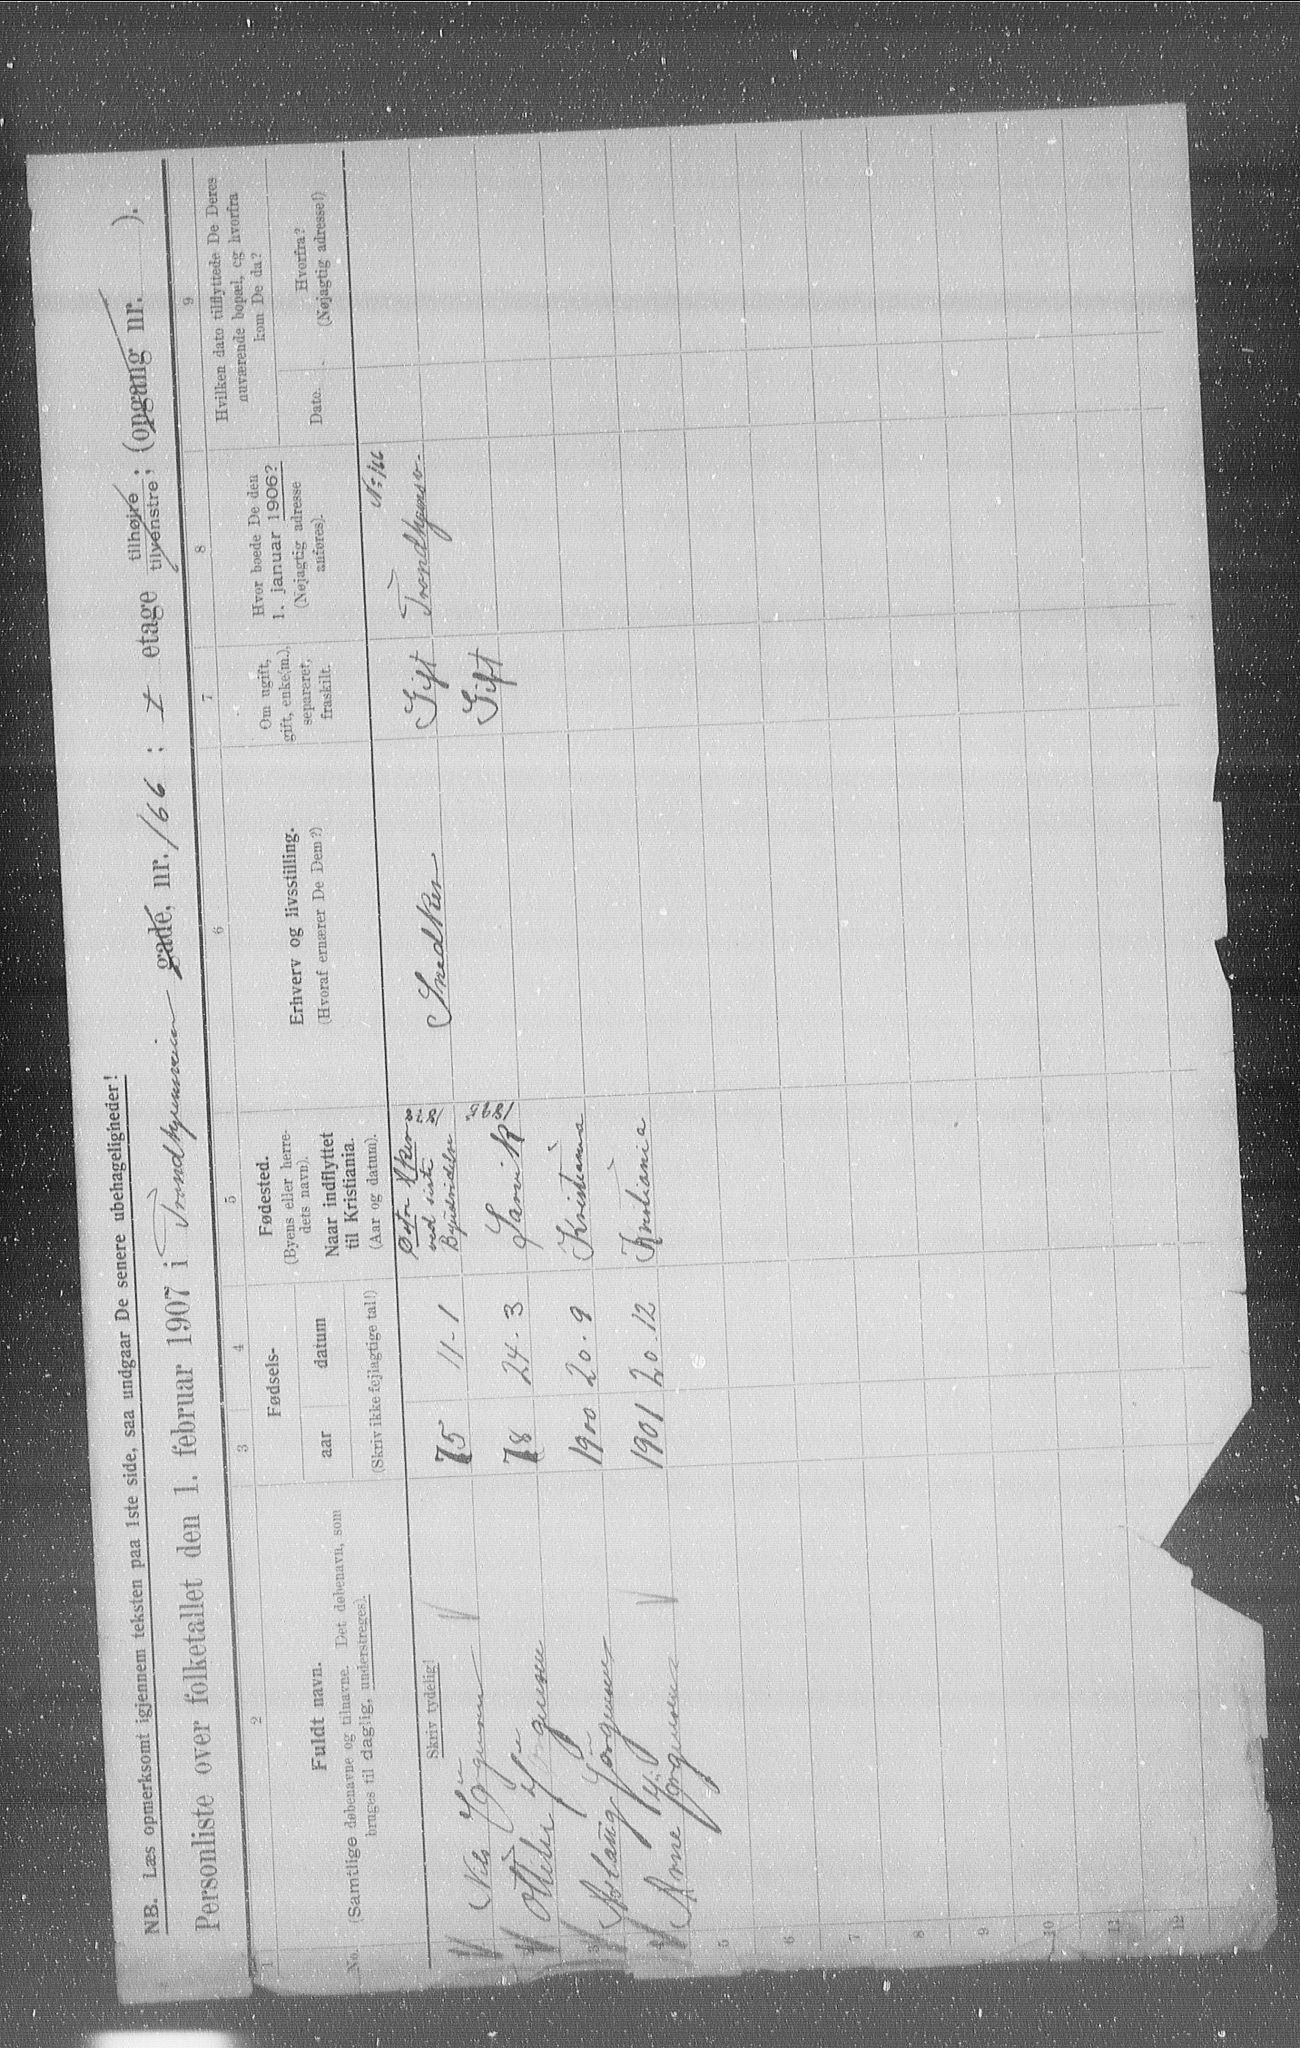 NB. Læs opmerksomt igjennem teksten paa 1ste side, saa undgaar De senere ubehageligheder!
Personliste over folketallet den 1. februar 1907 i Trondhjemsveien gade, nr. 166 : 1 etage tilhøjre ; tilvenstre ; (opgang nr. ).
1 2 3 4 5 6 7 8 9
No.
Fuldt navn.
(Samtlige døbenavne og tilnavne. Det døbenavn, som
bruges til daglig, understreges).
Fødsels-
aar datum
(Skriv ikke fejlagtige tal!)
Fødested.
(Byens eller herre-
dets navn).
Naar indflyttet
til Kristiania.
(Aar og datum).
Erhverv og livsstilling.
(Hvoraf ernærer De Dem?)
Om ugift,
gift, enke(m.),
separeret,
fraskilt.
Hvor boede De den
1. januar 1906?
(Nøjagtig adresse
anføres).
Hvilken dato tilflyttede De Deres
nuværende bopæl, og hvorfra
kom De da?
Dato.
Hvorfra?
(Nøjagtig adresse!)
Skriv tydelig!
Nils Jørgensen 75 11-1 Østre Aker ved siste Byudvidelse 1878 Snedker Gift Trondhjemsv. No 166
Jørgensen 78 24.3 Larvik 1895 Gift
2
3 Aslaug Jörgensen 1900 20.9 Kristiania
4 Arne Jörgensen 1901 20.12 Kristiania
5
6
7
8
9
10
11
12